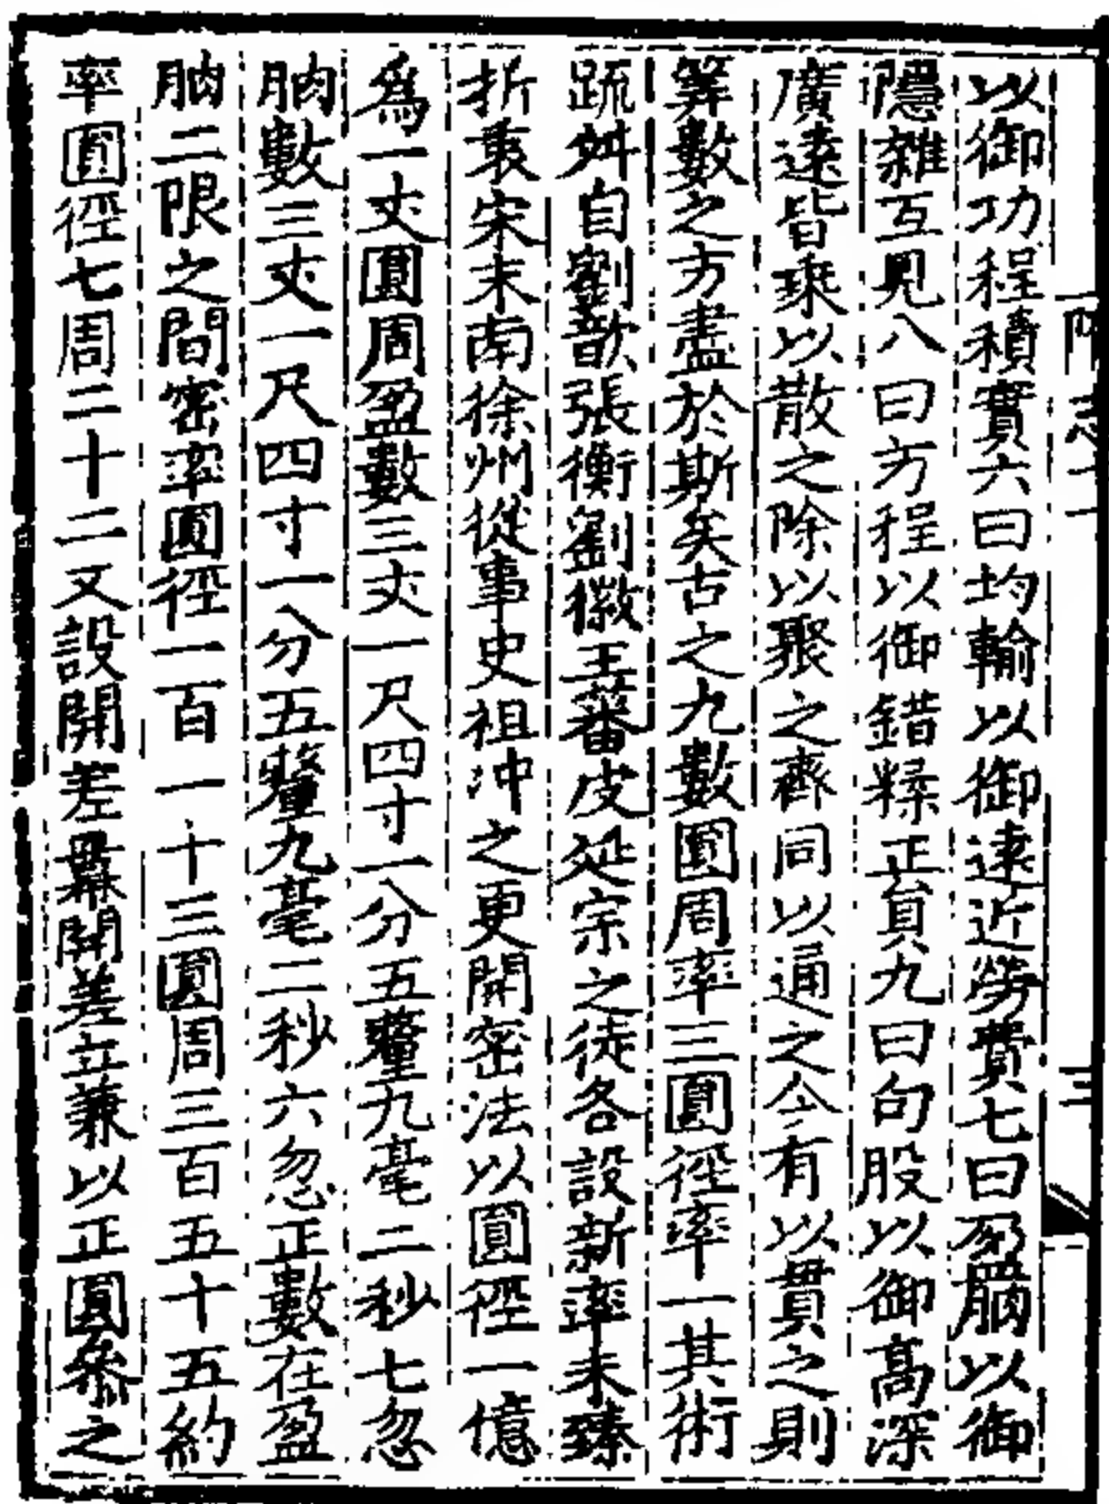 以御功程積實六曰均輸以御遠近勞費七曰盈朒以御
隱雜互見八曰方程以御錯糅正負九曰句股以御高深
廣遠皆乗以散之除以聚之齊同以通之今有以貫之則
筭數之方盡於斯矣古之九數圓周率三圓徑率一其術
疏舛自劉歆張衡劉徽王蕃皮延宗之徒各設新率未臻
折衷宋末南徐州從事史祖沖之更開密法以圓徑一億
爲一丈圓周盈數三丈一尺四寸一分五釐九毫二秒七忽
朒數三丈一尺四寸一分五釐九毫二秒六忽正數在盈
朒二限之間密率圓徑一百一十三圓周三百五十五約
率圓徑七周二十二又設開差冪開差立兼以正圓叅之
隋志十一
三